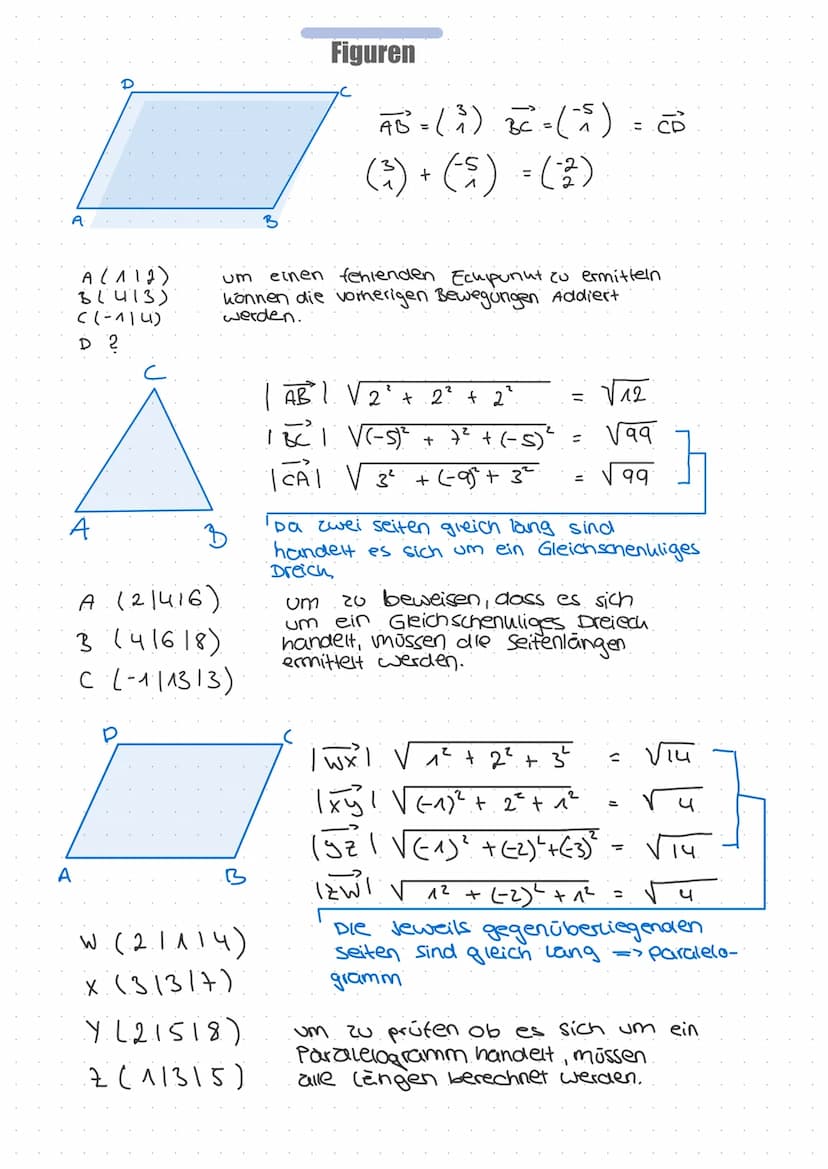 Figuren
D
C
A
B
AB = (3 1) BC = (-5 1) = CD
(3 1) + (-5 1) = (-2 2)
A (1|2)
B (4|3)
C (-1|4)
D ?
um einen fehlenden Eckpunkt zu ermitteln
können die vorherigen Bewegungen Addiert
werden.
C
A
B
|AB| √2² + 2² + 2² = √12
|BC| √(-5)² + 7² + (-5)² = √99
|CA| √3² + (-9)² + 3² = √99
Da zwei seiten gleich lang sind
handelt es sich um ein Gleichschenkliges
Dreick
A (2|4|6)
B (4|6|8)
C (-1|13|3)
um zu beweisen, dass es sich
um ein Gleichschenkliges Dreieck
handelt, müssen die Seitenlängen
ermittelt werden.
D
C
A
B
|WX| √1² + 2² + 3² = √14
|XY| √(-1)² + 2² + 1² = √4
|YZ| √(-1)² + (-2)² + (-3)² = √14
|ZW| √1² + (-2)² + 1² = √4
Die Jeweils gegenüberliegenden
seiten sind gleich lang => Paralelo-
gramm
W (2|1|4)
X (3|3|7)
Y (2|5|8)
Z (1|3|5)
um zu prüfen ob es sich um ein
Paralelogramm handelt, müssen
alle Längen berechnet werden.